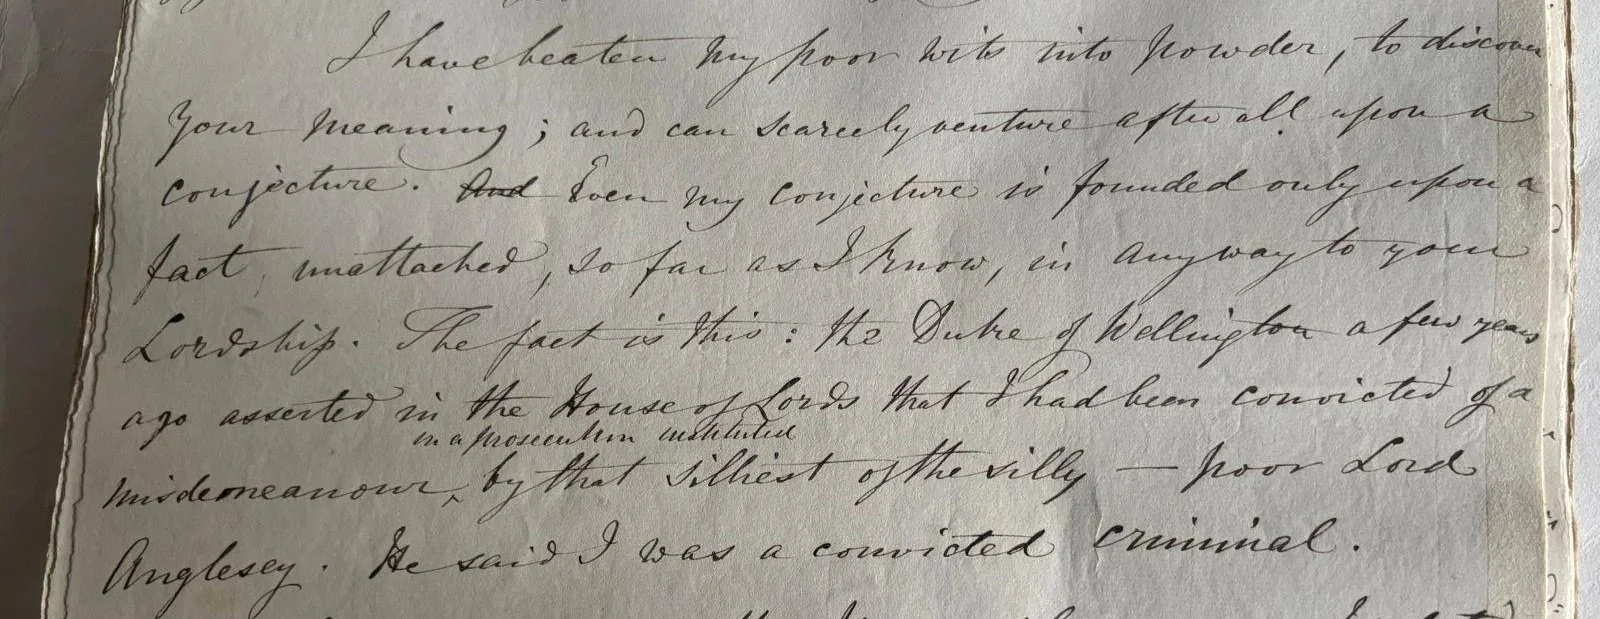 I have beaten my poor wits into powder, to discover
your meaning; and can scarcely venture after all upon a
conjecture. And Even my conjecture is founded only upon a
fact, unattached, so far as I know, in any way to your
Lordship. The fact is this: the Duke of Wellington a few years
ago asserted in the House of Lords that I had been convicted of a
in a prosecution instituted
misdemeanour, by that silliest of the silly — poor Lord
Anglesey. He said I was a convicted criminal.